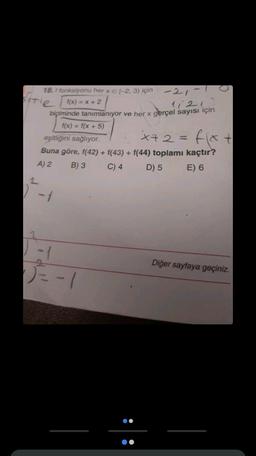 18. f fonksiyonu her x ∈ [-2, 3) için -2, -1 0
f(x) = x + 2
1, 2,
biçiminde tanımlanıyor ve her x gerçel sayısı için
f(x) = f(x + 5)
x+2 = f(x +
eşitliğini sağlıyor.
Buna göre, f(42) + f(43) + f(44) toplamı kaçtır?
A) 2 B) 3 C) 4 D) 5 E) 6
-1
-1
Diğer sayfaya geçiniz.
)² = -1